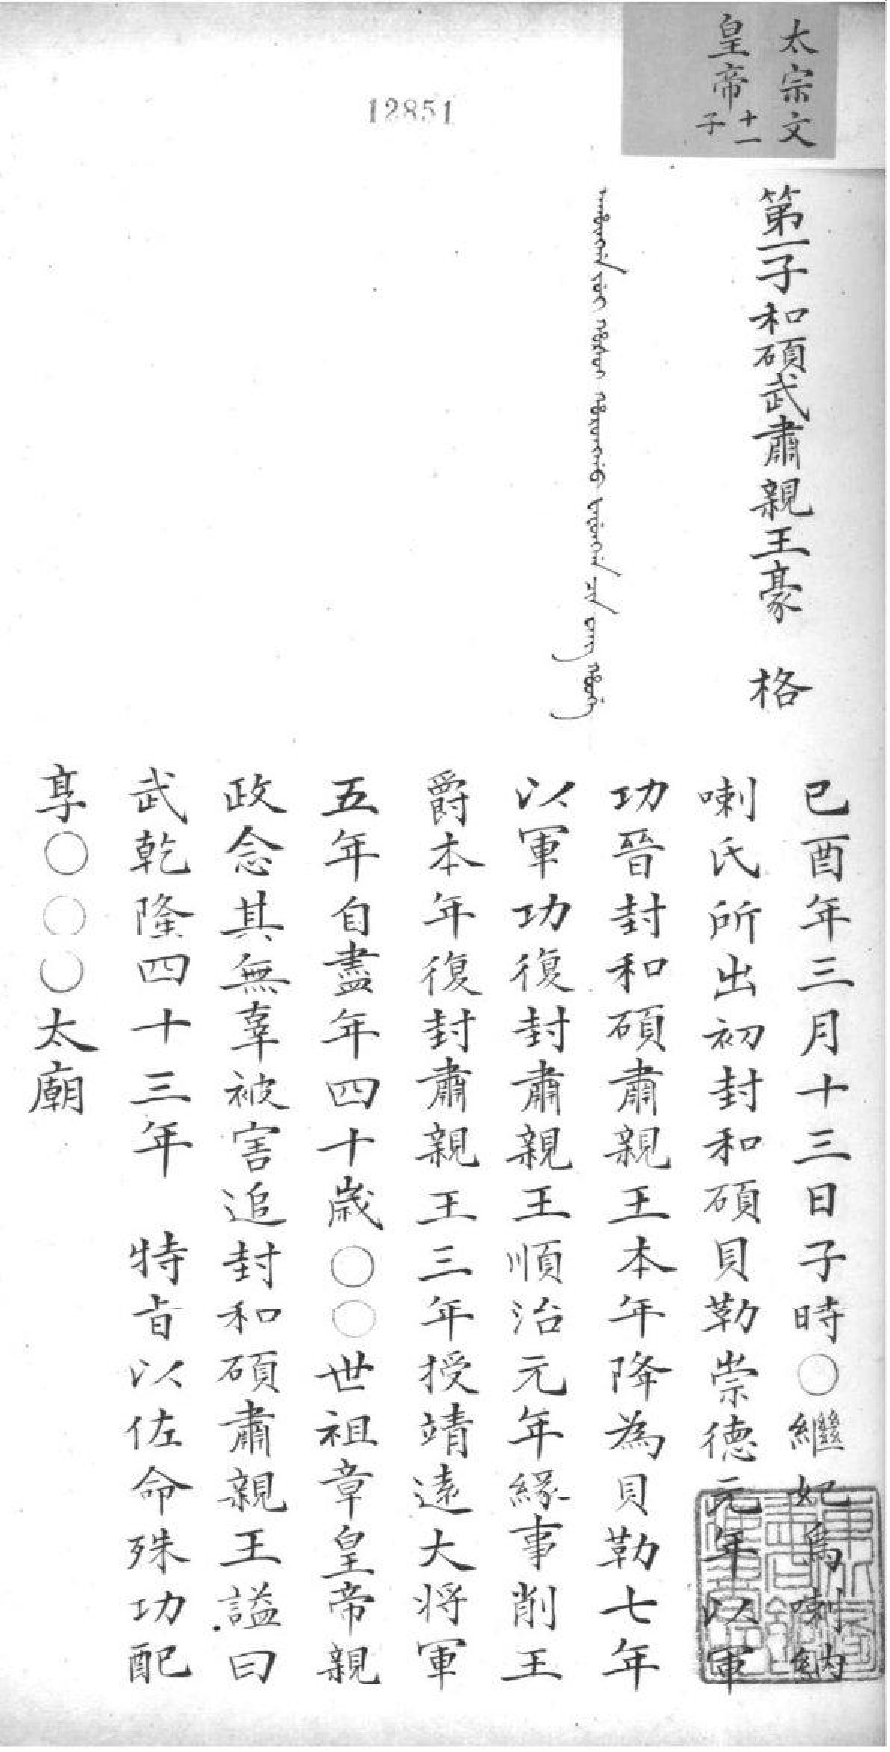 太宗文
皇帝十一
子
12851
第一子和碩武肅親王豪 格
己酉年三月十三日子時○繼妃烏喇納
喇氏所出初封和碩貝勒崇德元年以軍
功晉封和碩肅親王本年降為貝勒七年
以軍功復封肅親王順治元年緣事削王
爵本年復封肅親王三年授靖遠大將軍
五年自盡年四十歲○○世祖章皇帝親
政念其無辜被害追封和碩肅親王謚曰
武乾隆四十三年 特旨以佐命殊功配
享○○○太廟